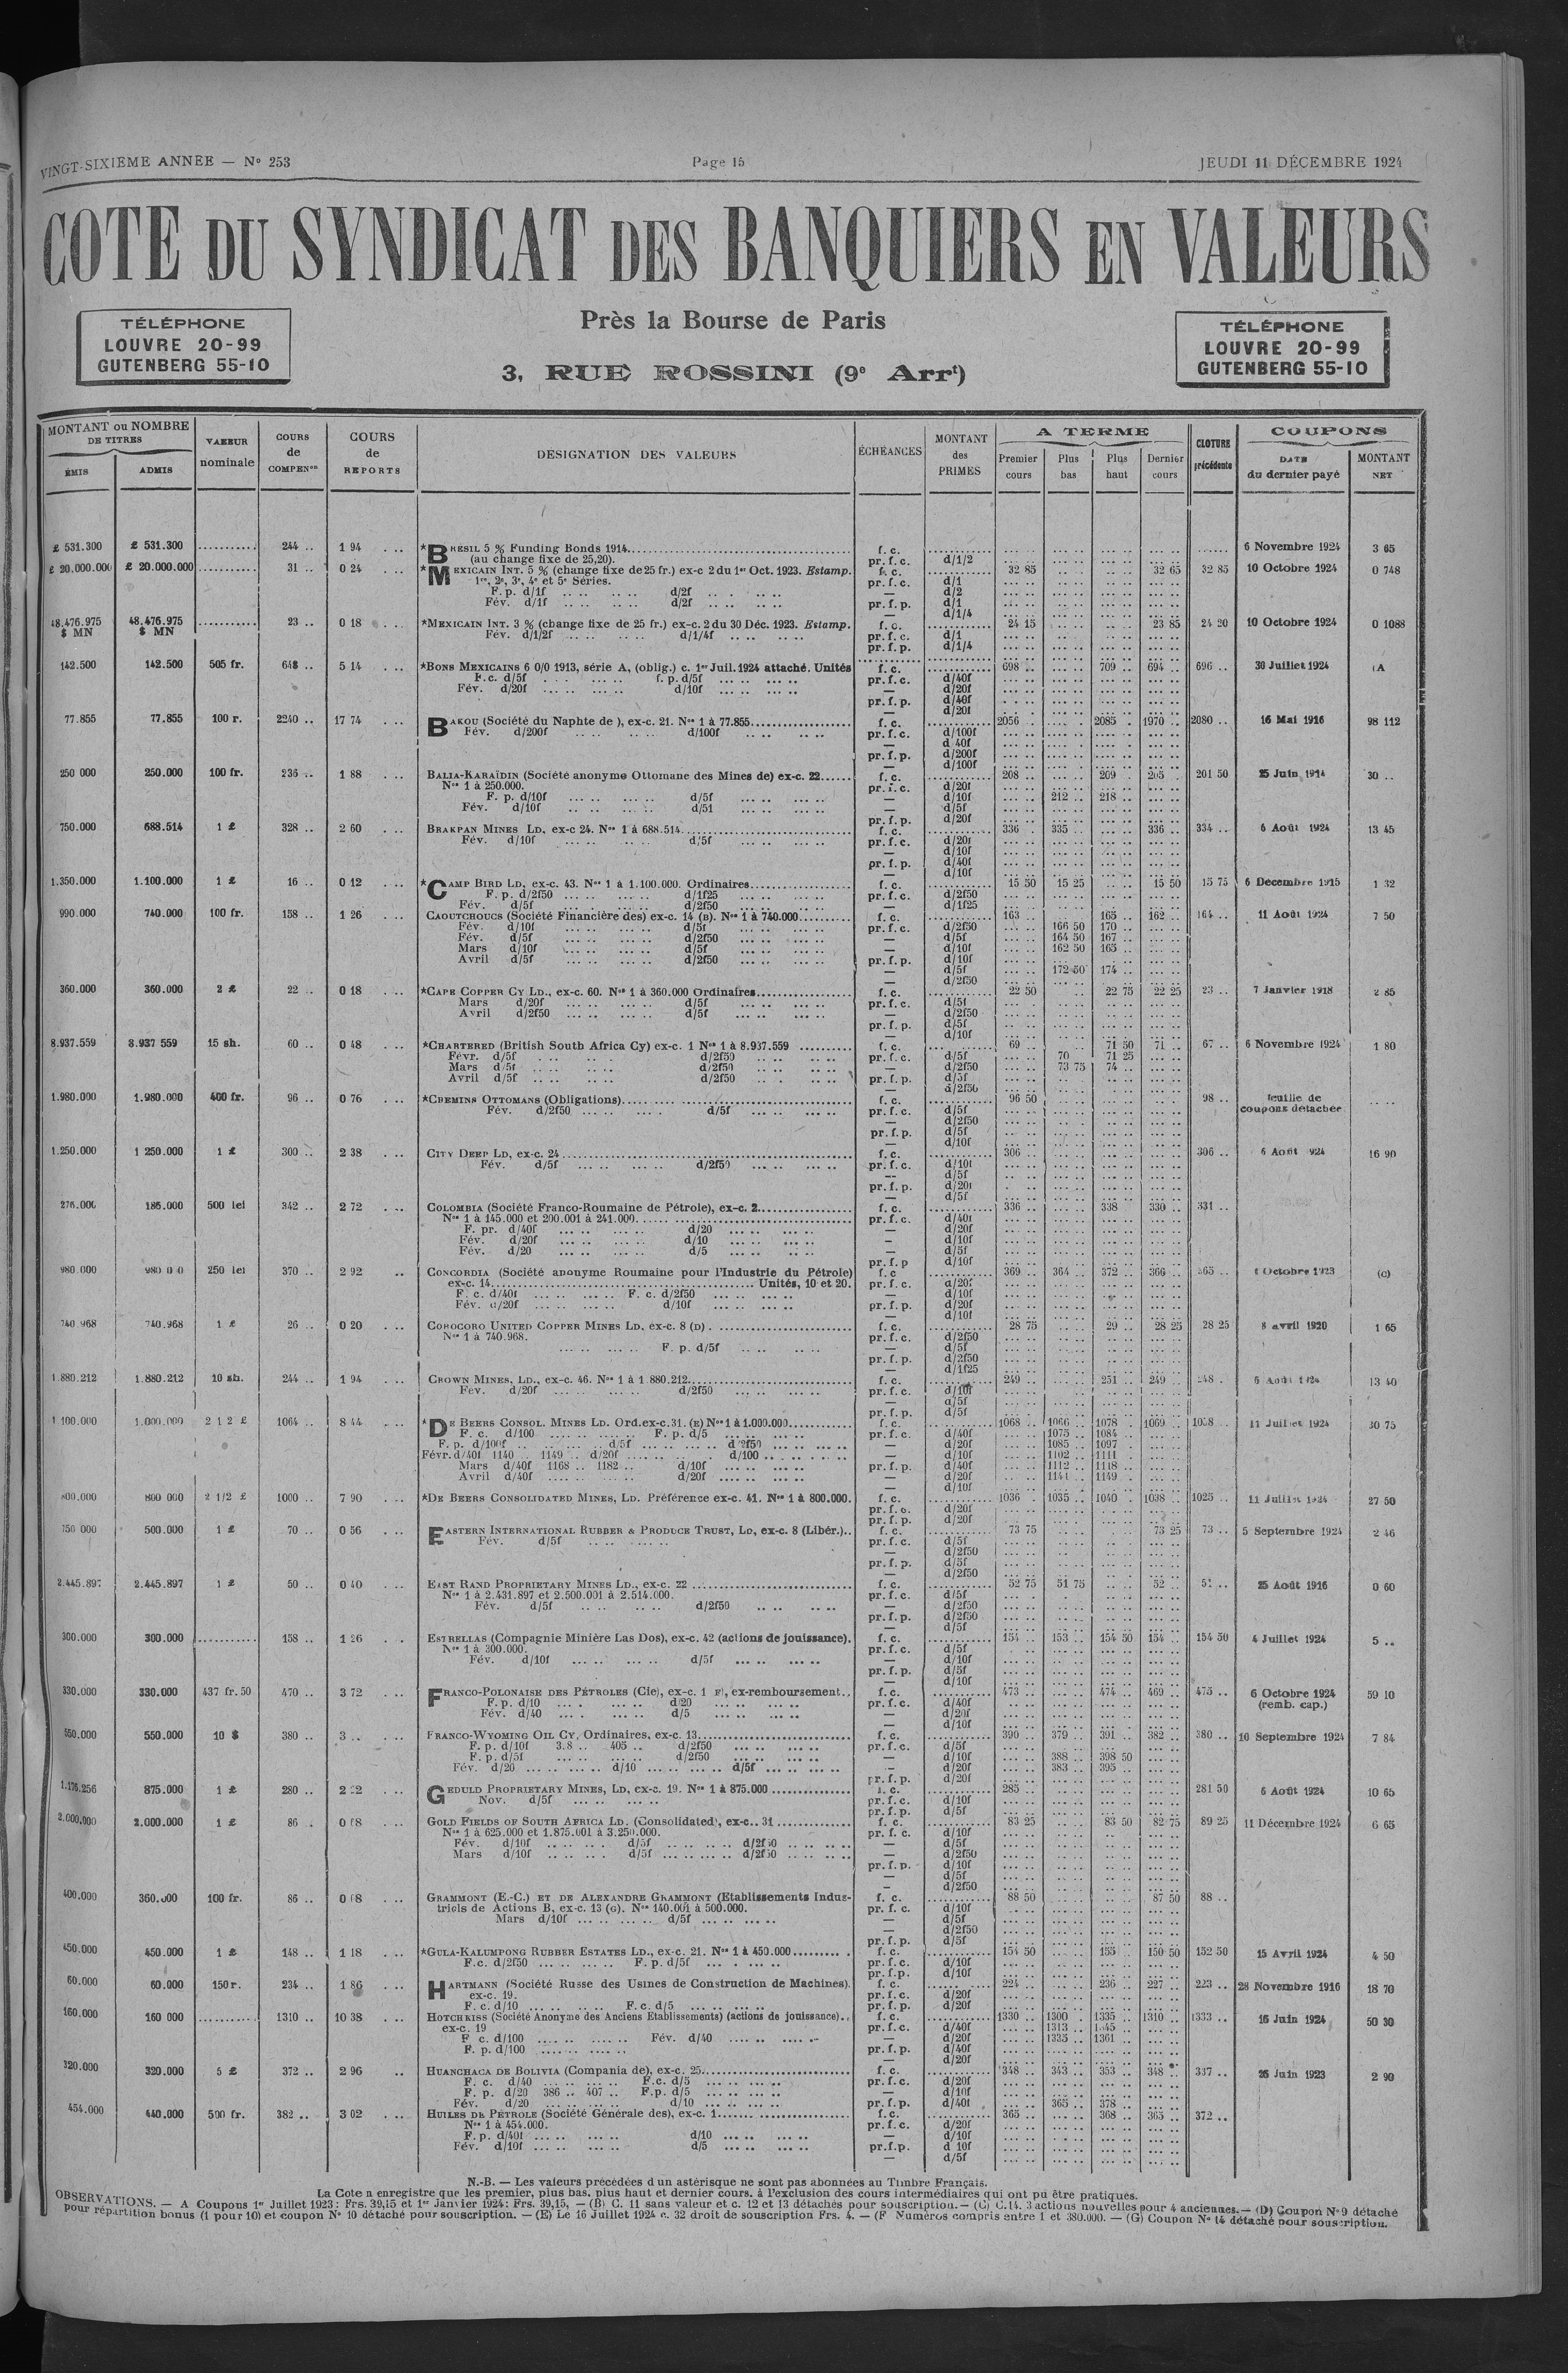 VINGT-SIXIEME ANNEE — No 253
Page 15
JEUDI 11 DÉCEMBRE 1924
COTE DU SYNDICAT DES BANQUIERS EN VALEURS
Près la Bourse de Paris
3, RUE ROSSINI (9e Arrt)
TÉLÉPHONE
LOUVRE 20-99
GUTENBERG 55-10
TÉLÉPHONE
LOUVRE 20-99
GUTENBERG 55-10
MONTANT ou NOMBRE DE TITRES
ÉMIS ADMIS
VALEUR nominale
COURS de COMPENon
COURS de REPORTS
DESIGNATION DES VALEURS
ÉCHÉANCES
MONTANT des PRIMES
A TERME
Premier cours Plus bas Plus haut Dernier cours
CLOTURE précédente
COUPONS
DATE du dernier payé
MONTANT NET
£ 531.300 £ 531.300 .......... 244 .. 1 94 *BRESIL 5 % Funding Bonds 1914 f. c. 6 Novembre 1924 3 65
(au change fixe de 25,20). pr. f. c. d/1/2
£ 20.000.000 £ 20.000.000 .......... 31 .. 0 24 *MEXICAIN INT. 5 % (change fixe de 25 fr.) ex-c 2 du 1er Oct. 1923. Estamp. f. c. 32 85 32 65 32 85 10 Octobre 1924 0 748
1re, 2e, 3e, 4e et 5e Séries. pr. f. c. d/1
F. p. d/1f d/2f — d/2
Fév. d/1f d/2f pr. f. p. d/1
— d/1/4
48.476.975 $ MN 48.476.975 $ MN .......... 23 .. 0 18 *MEXICAIN INT. 3 % (change fixe de 25 fr.) ex-c. 2 du 30 Déc. 1923. Estamp. f. c. 24 15 23 85 24 20 10 Octobre 1924 0 1088
Fév. d/1/2f d/1/4f pr. f. c. d/1
pr. f. p. d/1/4
142.500 142.500 505 fr. 648 .. 5 14 *BONS MEXICAINS 6 0/0 1913, série A, (oblig.) c. 1er Juil. 1924 attaché. Unités f. c. 698 .. 709 .. 694 .. 696 .. 30 Juillet 1924 (A
F.c. d/5f f. p. d/5f pr. f. c. d/40f
Fév. d/20f d/10f — d/20f
pr. f. p. d/40f
— d/20f
77.855 77.855 100 r. 2240 .. 17 74 BAKOU (Société du Naphte de ), ex-c. 21. Nos 1 à 77.855 f. c. 2056 2085 1970 .. 2080 .. 16 Mai 1916 98 112
Fév. d/200f d/100f pr. f. c. d/100f
— d 40f
pr. f. p. d/200f
— d/100f
250 000 250.000 100 fr. 236 .. 1 88 BALIA-KARAÏDIN (Société anonyme Ottomane des Mines de) ex-c. 22 f. c. 208 .. 209 .. 205 201 50 25 Juin 1914 30 ..
Nos 1 à 250.000. pr. f. c. d/20f
F. p. d/10f d/5f — d/10f 212 .. 218 ..
Fév. d/10f d/51 — d/5f
pr. f. p. d/20f
750.000 688.514 1 £ 328 .. 2 60 BRAKPAN MINES LD, ex-c 24. Nos 1 à 688.514 f. c. 336 335 .. 336 .. 334 .. 6 Août 1924 13 45
Fév. d/10f d/5f pr. f. c. d/20f
— d/10f
pr. f. p. d/40f
— d/10f
1.350.000 1.100.000 1 £ 16 .. 0 12 *CAMP BIRD LD, ex-c. 43. Nos 1 à 1.100.000. Ordinaires f. c. 15 50 15 25 15 50 15 75 6 Décembre 1915 1 32
F. p. d/2f50 d/1f25 pr. f. c. d/2f50
Fév. d/5f d/2f50 — d/1f25
990.000 740.000 100 fr. 158 .. 1 26 CAOUTCHOUCS (Société Financière des) ex-c. 14 (B). Nos 1 à 740.000 f. c. 163 165 .. 162 .. 164 .. 11 Août 1924 7 50
Fév. d/10f d/5f pr. f. c. d/2f50 166 50 170 ..
Fév. d/5f d/2f50 — d/5f 164 50 167 ..
Mars d/10f d/5f — d/10f 162 50 165 ..
Avril d/5f d/2f50 pr. f. p. d/10f
— d/5f 172 50 174 ..
— d/2f50
360.000 360.000 2 £ 22 .. 0 18 *CAPE COPPER CY LD., ex-c. 60. Nos 1 à 360.000 Ordinaires f. c. 22 50 22 75 22 25 23 .. 7 Janvier 1918 2 85
Mars d/20f d/5f pr. f. c. d/5f
Avril d/2f50 d/5f — d/2f50
pr. f. p. d/5f
— d/10f
8.937.559 8.937 559 15 sh. 60 .. 0 48 *CHARTERED (British South Africa Cy) ex-c. 1 Nos 1 à 8.937.559 f. c. 69 .. 71 50 71 .. 67 .. 6 Novembre 1924 1 80
Févr. d/5f d/2f50 pr. f. c. d/5f 70 71 25
Mars d/5f d/2f50 — d/2f50 73 75 74 ..
Avril d/5f d/2f50 pr. f. p. d/5f
— d/2f50
1.980.000 1.980.000 400 fr. 96 .. 0 76 *CHEMINS OTTOMANS (Obligations) f. c. 96 50 98 .. feuille de coupons détachée
Fév. d/2f50 d/5f pr. f. c. d/5f
— d/2f50
pr. f. p. d/5f
— d/10f
1.250.000 1 250.000 1 £ 300 .. 2 38 CITY DEEP LD, ex-c. 24 f. c. 306 306 .. 6 Août 1924 16 90
Fév. d/5f d/2f50 pr. f. c. d/10f
— d/5f
pr. f. p. d/20f
— d/5f
276.000 186.000 500 lei 342 .. 2 72 COLOMBIA (Société Franco-Roumaine de Pétrole), ex-c. 2 f. c. 336 338 330 .. 331 ..
Nos 1 à 145.000 et 200.001 à 241.000. pr. f. c. d/40f
F. pr. d/40f d/20 — d/20f
Fév. d/20f d/10 — d/10f
Fév. d/20 d/5 — d/5f
pr. f. p d/10f
980.000 980 0 0 250 lei 370 .. 2 92 CONCORDIA (Société anonyme Roumaine pour l'Industrie du Pétrole) f. c 369 364 372 .. 366 365 .. Octobre 1923 (c)
ex-c. 14 Unités, 10 et 20. pr. f. c. d/20f
F. c. d/40f F. c. d/2f50 — d/10f
Fév. d/20f d/10f pr. f. p. d/20f
— d/10f
740.968 740.968 1 £ 26 .. 0 20 COROCORO UNITED COPPER MINES LD, ex-c. 8 (D) f. c. 28 75 29 .. 28 25 28 25 8 avril 1920 1 65
Nos 1 à 740.968. pr. f. c. d/2f50
F. p. d/5f — d/5f
pr. f. p. d/2f50
— d/1f25
1.880.212 1.880.212 10 sh. 244 .. 1 94 CROWN MINES, LD., ex-c. 46. Nos 1 à 1.880.212 f. c. 249 251 .. 249 .. 248 6 Août 1924 13 40
Fév. d/20f d/2f50 pr. f. c. d/10f
— d/5f
pr. f. p. d/5f
1 100.000 1.000.000 2 1 2 £ 1064 .. 8 44 *DE BEERS CONSOL. MINES LD. Ord. ex-c. 31. (E) Nos 1 à 1.000.000 f. c. 1068 .. 1066 .. 1078 1069 .. 1058 11 Juillet 1924 30 75
F. c. d/100 F. p. d/5 pr. f. c. d/40f 1075 .. 1084 ..
F. p. d/100f d/5f d/2f50 — d/20f 1085 .. 1097
Févr. d/40f 1140 .. 1149 .. d/20f d/100 — d/10f 1102 .. 1111
Mars d/40f 1168 .. 1182 .. d/10f pr. f. p. d/40f 1112 .. 1118 ..
Avril d/40f d/20f — d/20f 1141 .. 1149 ..
— d/10f
800.000 800 000 2 1/2 £ 1000 .. 7 90 *DE BEERS CONSOLIDATED MINES, LD. Préférence ex-c. 41. Nos 1 à 800.000. f. c. 1036 1035 .. 1040 1038 .. 1025 .. 11 Juillet 1924 27 50
pr. f. c. d/20f
pr. f. p. d/20f
750 000 500.000 1 £ 70 .. 0 56 EASTERN INTERNATIONAL RUBBER & PRODUCE TRUST, LD, ex-c. 8 (Libér.) f. c. 73 75 73 25 73 .. 5 Septembre 1924 2 46
Fév. d/5f pr. f. c. d/5f
— d/2f50
pr. f. p. d/5f
— d/2f50
2.445.897 2.445.897 1 £ 50 .. 0 40 EAST RAND PROPRIETARY MINES LD., ex-c. 22 f. c. 52 75 51 75 52 .. 51 .. 25 Août 1916 0 60
Nos 1 à 2.431.897 et 2.500.001 à 2.514.000. pr. f. c. d/5f
Fév. d/5f d/2f50 — d/2f50
pr. f. p. d/2f50
— d/5f
300.000 300.000 .......... 158 .. 1 26 ESTRELLAS (Compagnie Minière Las Dos), ex-c. 42 (actions de jouissance). f. c. 154 153 .. 154 50 154 .. 154 50 4 Juillet 1924 5 ..
Nos 1 à 300.000. pr. f. c. d/5f
Fév. d/10f d/5f — d/10f
pr. f. p. d/5f
— d/10f
330.000 330.000 437 fr. 50 470 .. 3 72 FRANCO-POLONAISE DES PÉTROLES (Cie), ex-c. 1 F), ex-remboursement f. c. 473 474 .. 469 .. 475 .. 6 Octobre 1924 (remb. cap.) 59 10
F. p. d/10 d/20 pr. f. c. d/40f
Fév. d/40 d/5 — d/20f
— d/10f
550.000 550.000 10 $ 380 .. 3 .. FRANCO-WYOMING OIL CY, Ordinaires, ex-c. 13 f. c. 390 379 .. 391 .. 382 .. 380 .. 10 Septembre 1924 7 84
F. p. d/10f 3.8 .. 405 .. d/2f50 pr. f. c. d/5f
F. p. d/5f d/2f50 — d/10f 388 .. 398 50
Fév. d/20 d/10 d/5f — d/20f 383 .. 395 ..
pr. f. p. d/20f
1.176.256 875.000 1 £ 280 .. 2 22 GEDULD PROPRIETARY MINES, LD, ex-c. 19. Nos 1 à 875.000 f. c. 285 281 50 6 Août 1924 10 65
Nov. d/5f pr. f. c. d/10f
pr. f. p. d/5f
2.000.000 2.000.000 1 £ 86 . 0 68 GOLD FIELDS OF SOUTH AFRICA LD. (Consolidated), ex-c.. 31 f. c. 83 25 83 50 82 75 89 25 11 Décembre 1924 6 65
Nos 1 à 625.000 et 1.875.001 à 3.250.000. pr. f. c. d/10f
Fév. d/10f d/5f d/2f50 — d/5f
Mars d/10f d/5f d/2f50 — d/2f50
pr. f. p. d/10f
— d/5f
— d/2f50
400.000 360.000 100 fr. 86 .. 0 68 GRAMMONT (E.-C.) ET DE ALEXANDRE GRAMMONT (Etablissements Indus- f. c. 88 50 87 50 88 ..
triels de Actions B, ex-c. 13 (G). Nos 140.001 à 500.000. pr. f. c. d/10f
Mars d/10f d/5f — d/5f
— d/2f50
pr. f. p. d/5f
450.000 450.000 1 £ 148 .. 1 18 *GULA-KALUMPONG RUBBER ESTATES LD., ex-c. 21. Nos 1 à 450.000 f. c. 154 50 155 150 50 152 50 15 Avril 1924 4 50
F.c. d/2f50 F. p. d/5f pr. f. c. d/10f
pr. f. p. d/10f
60.000 60.000 150 r. 234 .. 1 86 HARTMANN (Société Russe des Usines de Construction de Machines). f. c. 224 236 .. 227 .. 223 .. 28 Novembre 1916 18 70
ex-c. 19. pr. f. c. d/20f
F. c. d/10 F. c. d/5 pr. f. p. d/20f
160.000 160 000 .......... 1310 .. 10 38 HOTCHKISS (Société Anonyme des Anciens Etablissements) (actions de jouissance).. f. c. 1330 .. 1300 1335 .. 1310 .. 1333 .. 16 Juin 1924 50 30
ex-c. 19 pr. f. c. d/40f 1313 .. 1345
F c. d/100 Fév. d/40 — d/20f 1335 .. 1361 ..
F. p. d/100 pr. f. p. d/40f
— d/20f
320.000 320.000 5 £ 372 .. 2 96 HUANCHACA DE BOLIVIA (Compania de), ex-c. 25 f. c. 348 343 .. 353 348 337 .. 26 Juin 1923 2 90
F. c. d/40 F.c. d/5 pr. f. c. d/20f
F. p. d/20 386 .. 407 .. F.p. d/5 — d/10f
Fév. d/20 d/10 pr. f. p. d/40f 365 378 ..
454.000 440.000 500 fr. 382 .. 3 02 HUILES DE PÉTROLE (Société Générale des), ex-c. 1 f. c. 365 368 .. 365 .. 372 ..
Nos 1 à 454.000. pr. f. c. d/20f
F. p. d/40f d/10 — d/10f
Fév. d/10f d/5 pr. f. p. d 10f
— d/5f
N.-B. — Les valeurs précédées d un astérisque ne sont pas abonnées au Timbre Français.
La Cote n enregistre que les premier, plus bas, plus haut et dernier cours, à l'exclusion des cours intermédiaires qui ont pu être pratiqués.
OBSERVATIONS. — A Coupons 1er Juillet 1923 : Frs. 39,15 et 1er Janvier 1924 : Frs. 39,15, — (B) C. 11 sans valeur et c. 12 et 13 détachés pour souscription. — (C) C.14. 3 actions nouvelles pour 4 anciennes. — (D) Coupon No 9 détaché
pour répartition bonus (1 pour 10) et coupon No 10 détaché pour souscription. — (E) Le 16 Juillet 1924 c. 32 droit de souscription Frs. 4. — (F Numéros compris entre 1 et 380.000. — (G) Coupon No 14 détaché pour souscription.